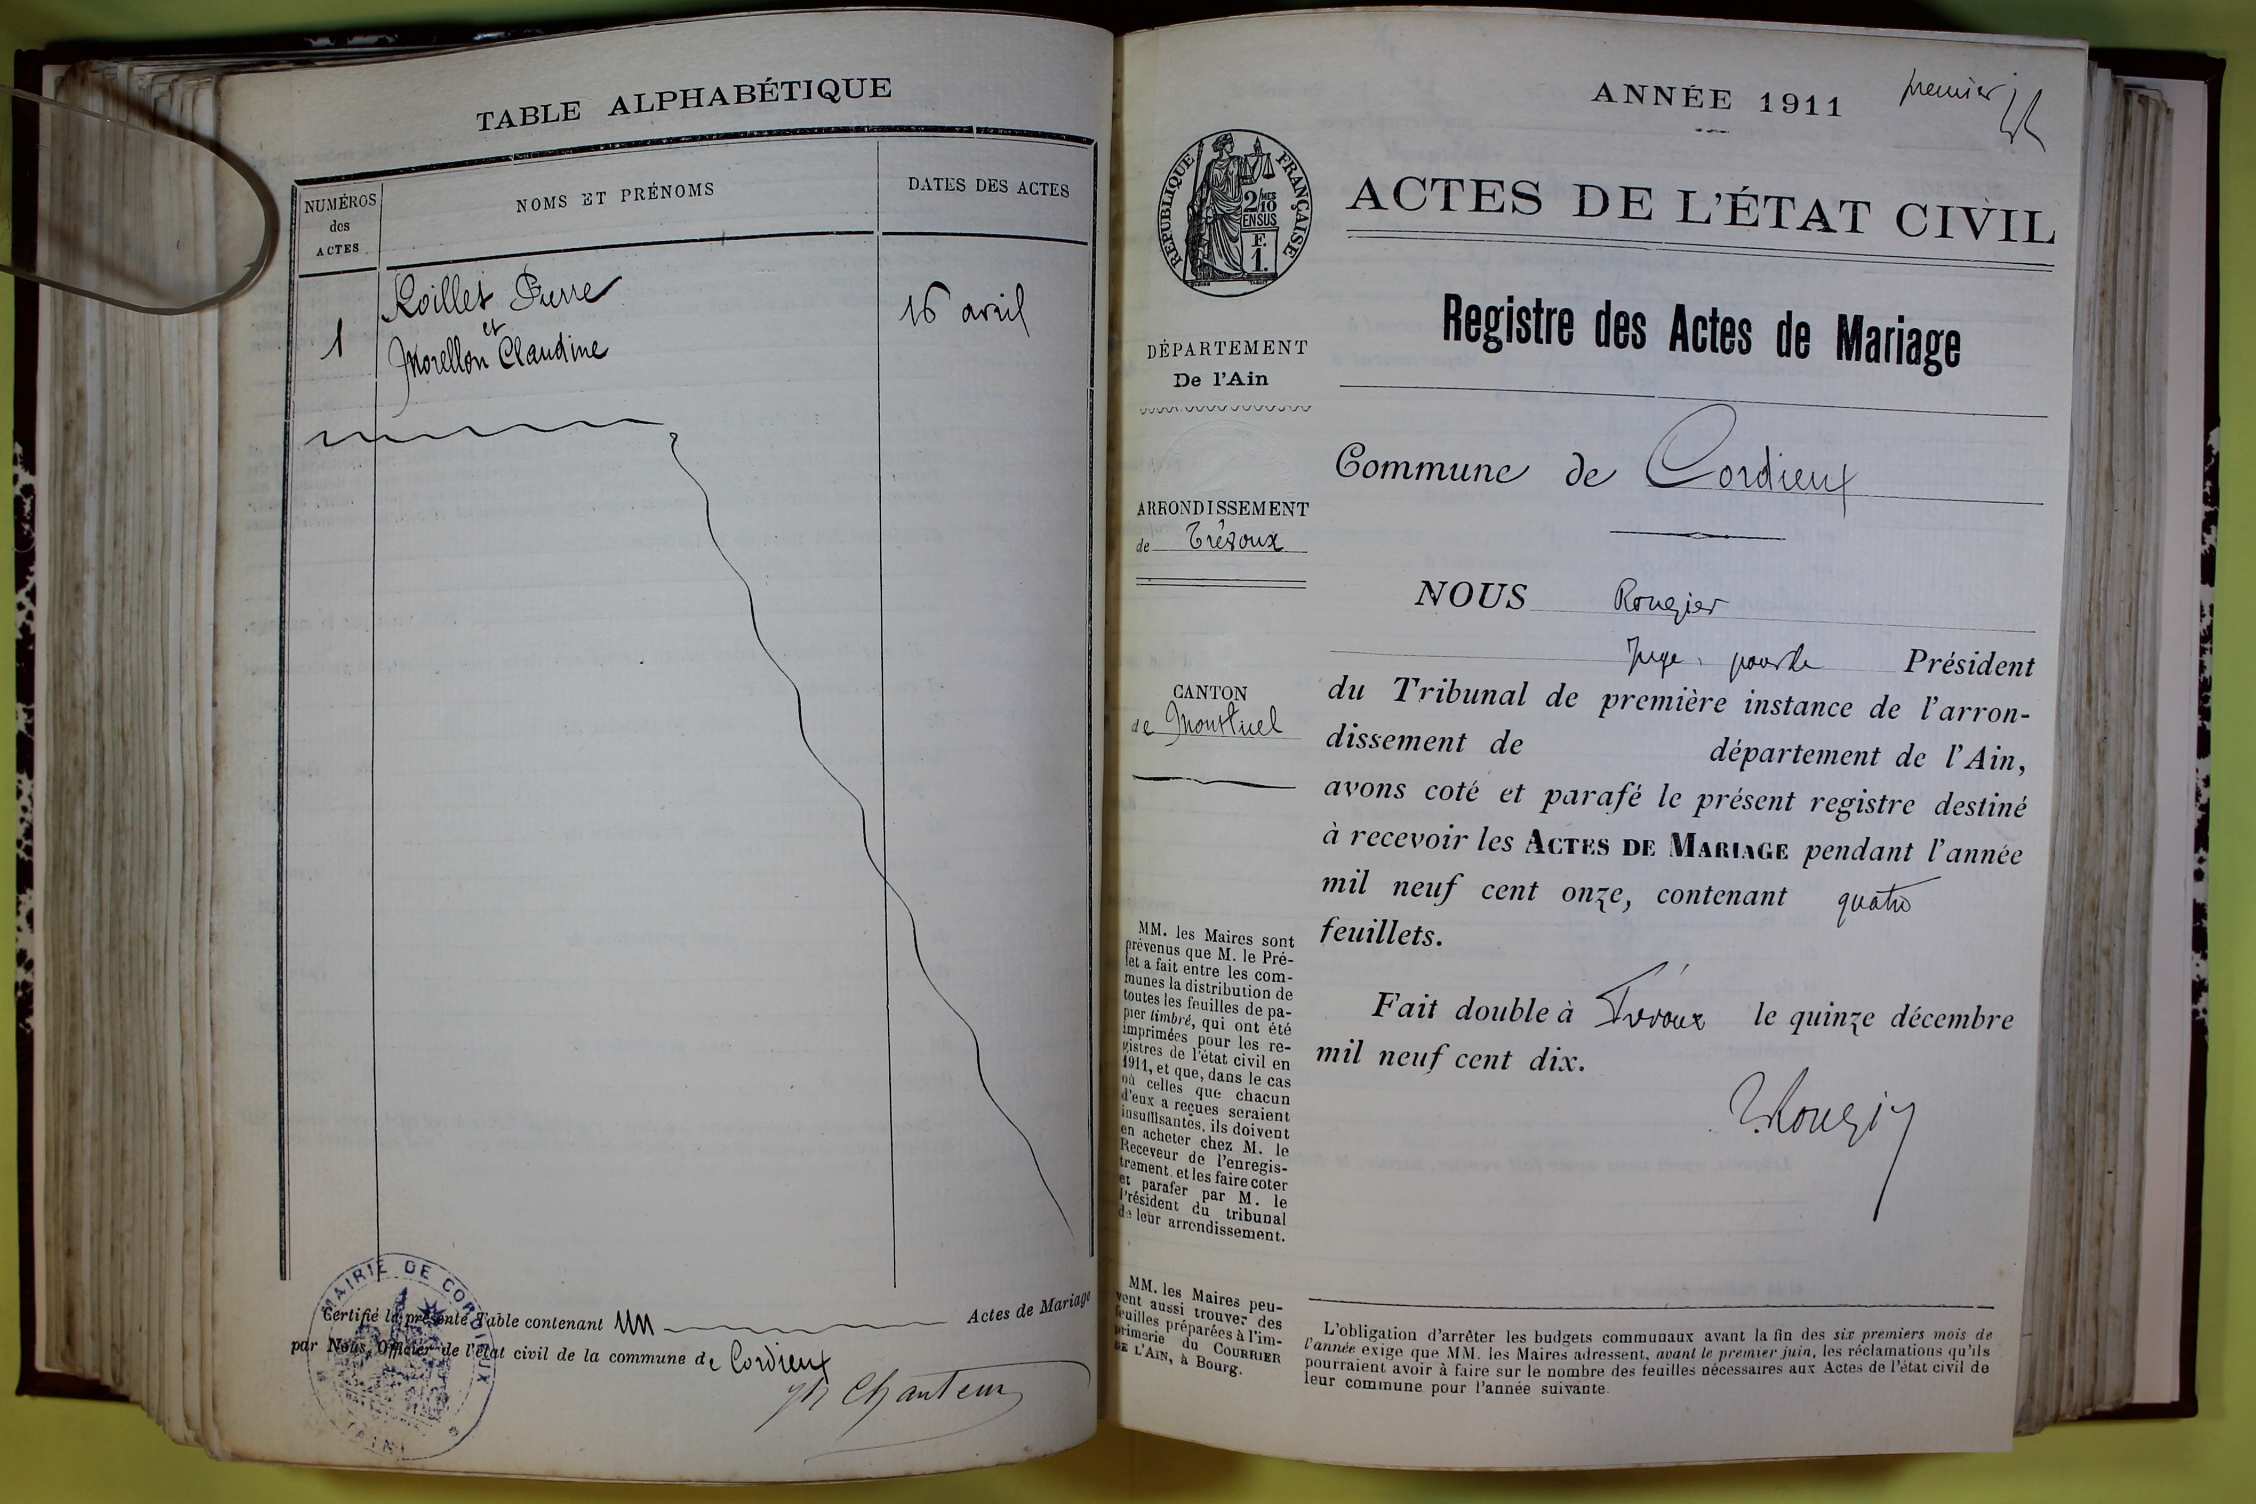 TABLE ALPHABÉTIQUE
NUMÉROS
des
ACTES
NOMS ET PRÉNOMS
DATES DES ACTES
1
Roillet Pierre
et
Morellon Claudine
16 avril
Certifié la présente Table contenant un Actes de Mariage
par Nous, Officier de l'état civil de la commune de Cordieux
Chanteur
MAIRIE DE CORDIEUX
(AIN)
ANNÉE 1911
premier
RÉPUBLIQUE FRANÇAISE
2/10 MES
EN SUS
F.
1.
ACTES DE L'ÉTAT CIVIL
Registre des Actes de Mariage
DÉPARTEMENT
De l'Ain
ARRONDISSEMENT
de Trévoux
CANTON
de Montluel
Commune de Cordieux
NOUS Rougier
Juge, pour le Président
du Tribunal de première instance de l'arron-
dissement de département de l'Ain,
avons coté et parafé le présent registre destiné
à recevoir les ACTES DE MARIAGE pendant l'année
mil neuf cent onze, contenant quatre
feuillets.
Fait double à Trévoux le quinze décembre
mil neuf cent dix.
Rougier
MM. les Maires sont
prévenus que M. le Pré-
fet a fait entre les com-
munes la distribution de
toutes les feuilles de pa-
pier timbré, qui ont été
imprimées pour les re-
gistres de l'état civil en
1911, et que, dans le cas
où celles que chacun
d'eux a reçues seraient
insuffisantes, ils doivent
en acheter chez M. le
Receveur de l'enregis-
trement et les faire coter
et parafer par M. le
Président du tribunal
de leur arrondissement.
MM. les Maires peu-
vent aussi trouver des
feuilles préparées à l'im-
primerie du COURRIER
DE L'AIN, à Bourg.
L'obligation d'arrêter les budgets communaux avant la fin des six premiers mois de
l'année exige que MM. les Maires adressent, avant le premier juin, les réclamations qu'ils
pourraient avoir à faire sur le nombre des feuilles nécessaires aux Actes de l'état civil de
leur commune pour l'année suivante.